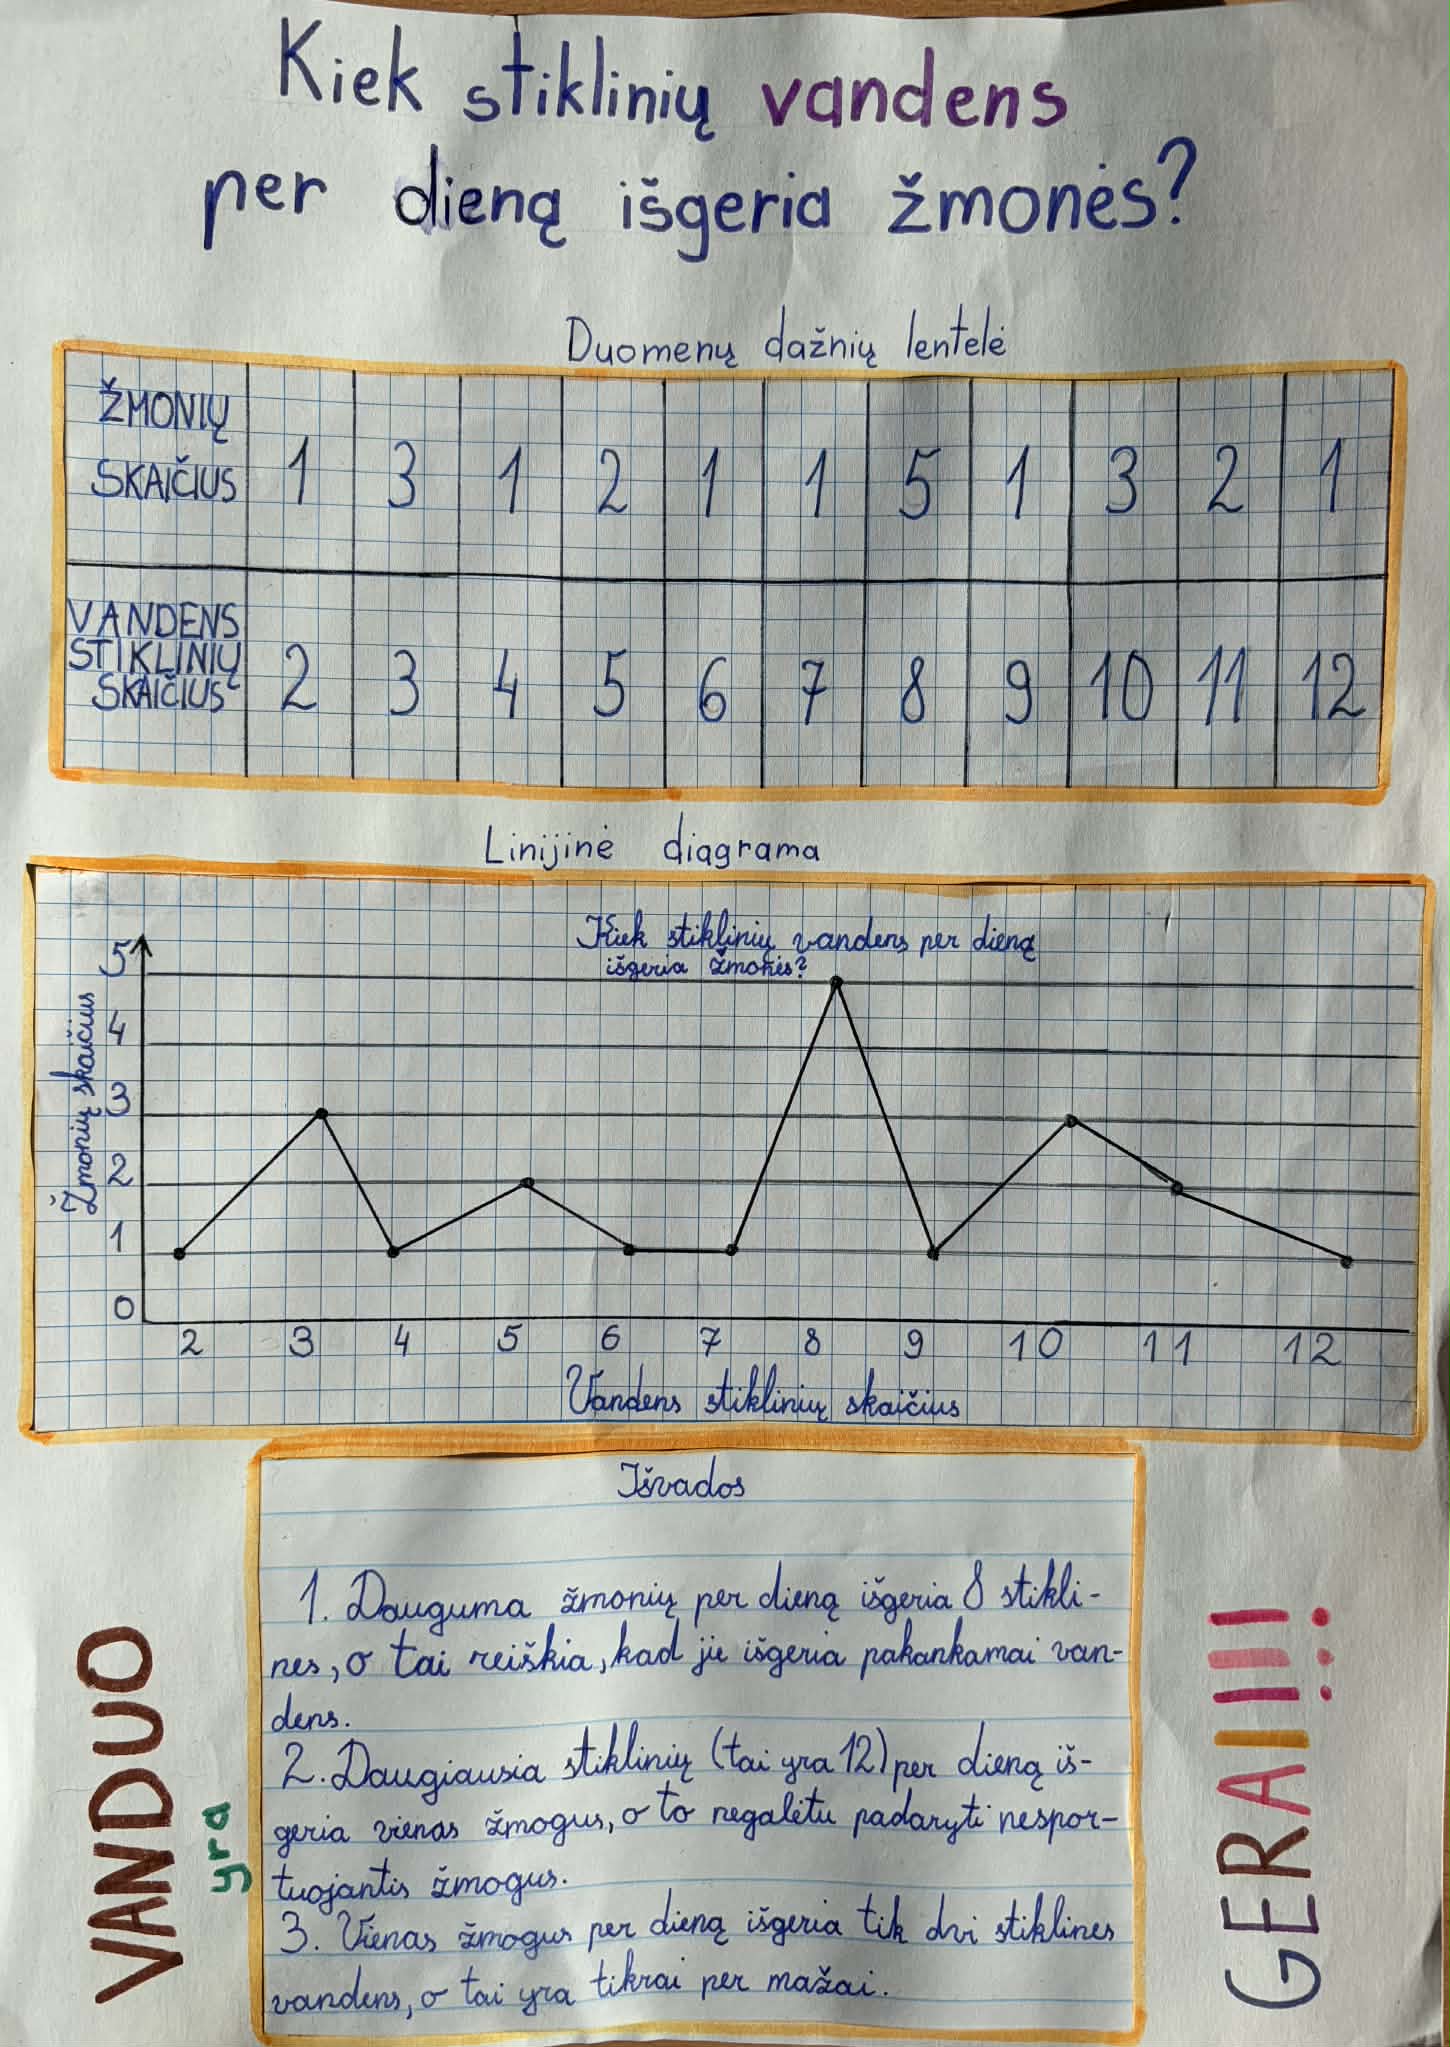 Kiek stiklinių vandens
per dieną išgeria žmonės?
Duomenų dažnių lentelė
ŽMONIŲ
SKAIČIUS 1 3 1 2 1 1 5 1 3 2 1
VANDENS
STIKLINIŲ
SKAIČIUS 2 3 4 5 6 7 8 9 10 11 12
Linijinė diagrama
Kiek stiklinių vandens per dieną
išgeria žmonės?
Žmonių skaičius
5
4
3
2
1
0
2 3 4 5 6 7 8 9 10 11 12
Vandens stiklinių skaičius
Išvados
1. Dauguma žmonių per dieną išgeria 8 stikli-
nes, o tai reiškia, kad jie išgeria pakankamai van-
dens.
2. Daugiausia stiklinių (tai yra 12) per dieną iš-
geria vienas žmogus, o to negalėtu padaryti nespor-
tuojantis žmogus.
3. Vienas žmogus per dieną išgeria tik dvi stiklines
vandens, o tai yra tikrai per mažai.
VANDUO
yra
GERAI!!!!